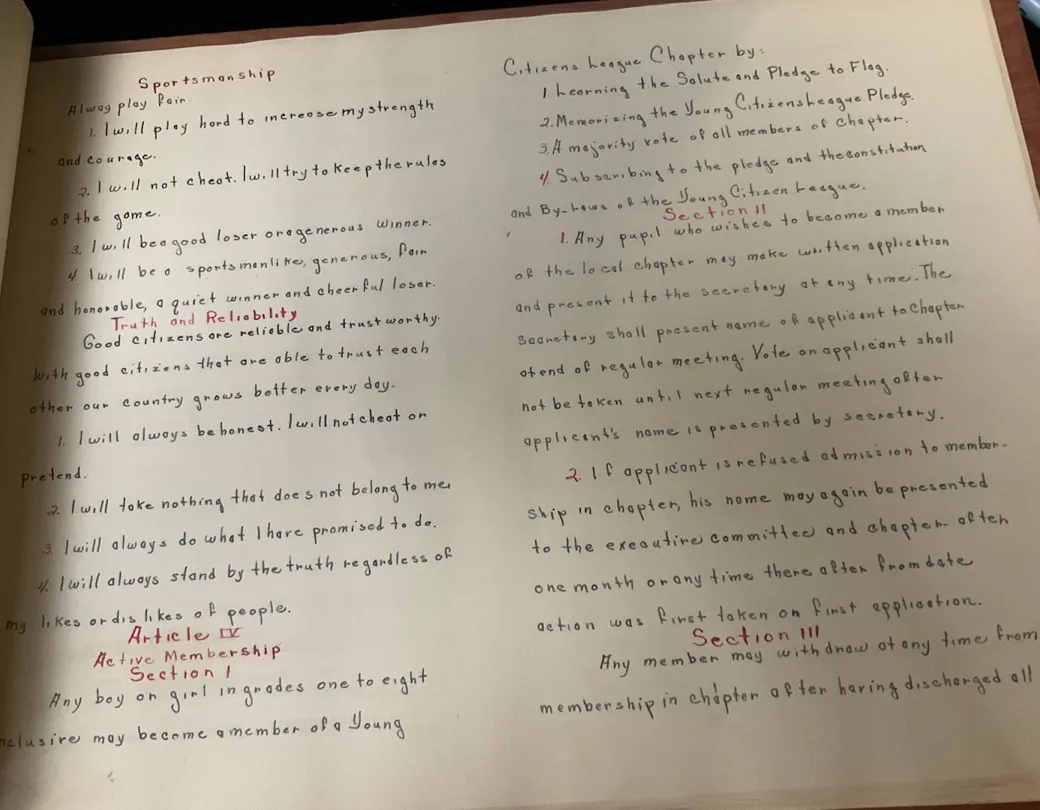 Sportsmanship
Always play fair.
1. I will play hard to increase my strength
and courage.
2. I will not cheat. I will try to keep the rules
of the game.
3. I will be a good loser or a generous winner.
4. I will be a sportsmanlike, generous, fair
and honorable, a quiet winner and cheerful loser.
Truth and Reliability
Good citizens are reliable and trustworthy.
With good citizens that are able to trust each
other our country grows better every day.
1. I will always be honest. I will not cheat or
pretend.
2. I will take nothing that does not belong to me.
3. I will always do what I have promised to do.
4. I will always stand by the truth regardless of
my likes or dislikes of people.
Article IV
Active Membership
Section I
Any boy or girl in grades one to eight
inclusive may become a member of a Young
Citizens League Chapter by:
1. Learning the Salute and Pledge to Flag.
2. Memorizing the Young Citizens League Pledge.
3. A majority vote of all members of Chapter.
4. Subscribing to the pledge and the constitution
and By-Laws of the Young Citizen League.
Section II
1. Any pupil who wishes to become a member
of the local chapter may make written application
and present it to the secretary at any time. The
secretary shall present name of applicant to Chapter
at end of regular meeting. Vote on applicant shall
not be taken until next regular meeting after
applicant's name is presented by secretary.
2. If applicant is refused admission to member-
ship in chapter, his name may again be presented
to the executive committee and chapter after
one month or any time there after from date
action was first taken on first application.
Section III
Any member may withdraw at any time from
membership in chapter after having discharged all